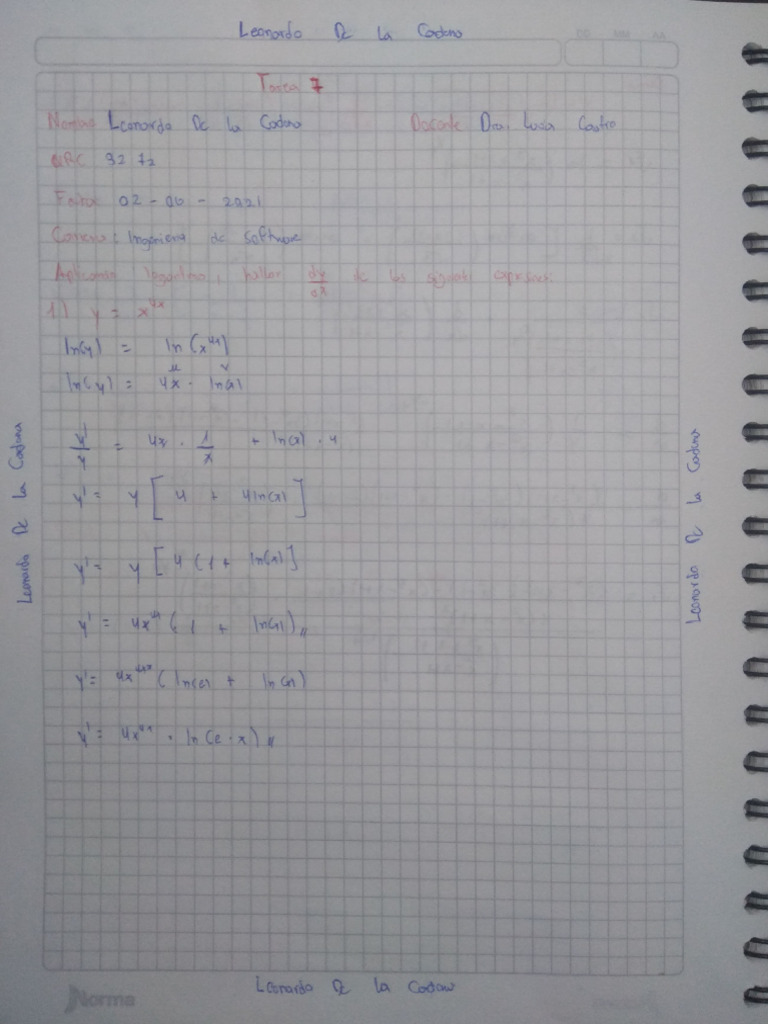 Leonardo De la Cadena
Tarea 7
Nombre Leonardo De la Cadena Docente Dra. Lucia Castro
NRC 3272
Fecha 02 - 06 - 2021
Carrera: Ingenieria de Software
Aplicando logaritmo, hallar dy/dx de las siguiente expresiones:
1) y = x^4x
ln(y) = ln(x^4x)
u v
ln(y) = 4x · ln(x)
y'/y = 4x · 1/x + ln(x) · 4
y' = y [ 4 + 4ln(x) ]
y' = y [ 4 (1 + ln(x) ]
y' = 4x^4x (1 + ln(x)) //
y' = 4x^4x (ln(e) + ln(x))
y' = 4x^4x · ln(e · x) //
Leonardo De la Cadena
Leonardo De la Cadena
Leonardo De la Cadena
Norma